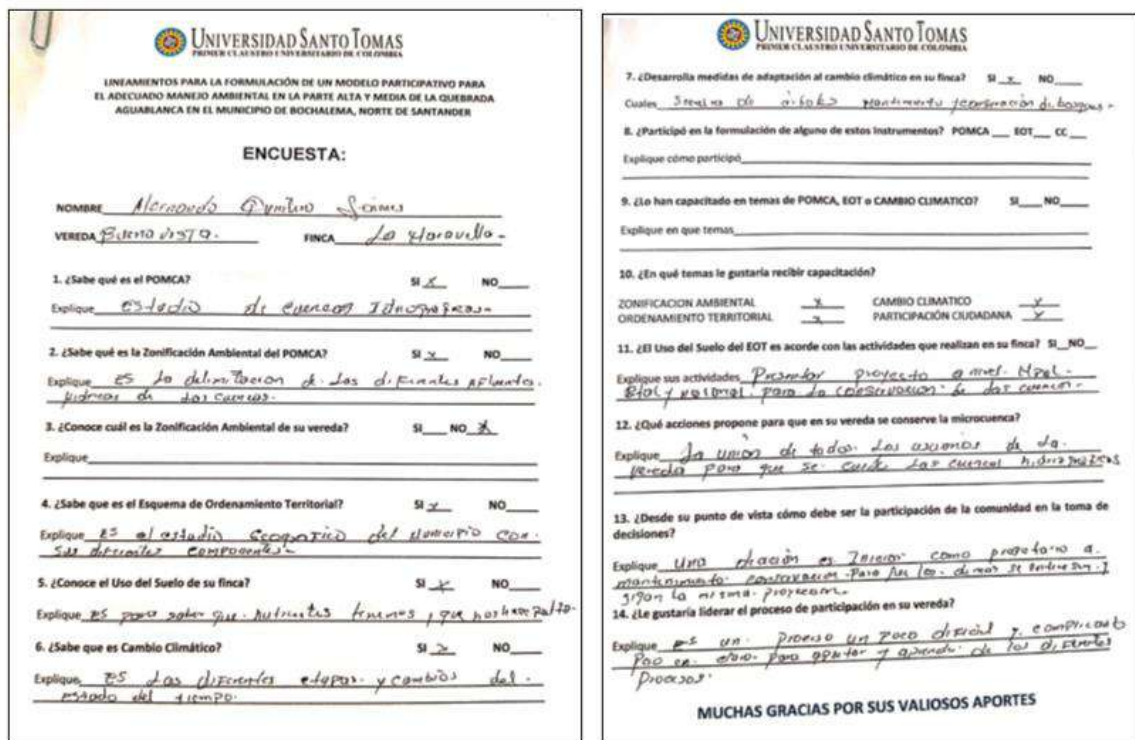 UNIVERSIDAD SANTO TOMAS
PRIMER CLAUSTRO UNIVERSITARIO DE COLOMBIA
LINEAMIENTOS PARA LA FORMULACIÓN DE UN MODELO PARTICIPATIVO PARA
EL ADECUADO MANEJO AMBIENTAL EN LA PARTE ALTA Y MEDIA DE LA QUEBRADA
AGUABLANCA EN EL MUNICIPIO DE BOCHALEMA, NORTE DE SANTANDER
ENCUESTA:
NOMBRE
VEREDA Buena vista. FINCA La Maravilla-
1. ¿Sabe qué es el POMCA? SI x NO
Explique Estudio de cuencas
2. ¿Sabe qué es la Zonificación Ambiental del POMCA? SI x NO
Explique Es la delimitación de las diferentes afluentes.
hidricas de las cuencas.
3. ¿Conoce cuál es la Zonificación Ambiental de su vereda? SI NO x
Explique
4. ¿Sabe que es el Esquema de Ordenamiento Territorial? SI x NO
Explique Es el estudio del Municipio con.
sus diferentes componentes-
5. ¿Conoce el Uso del Suelo de su finca? SI x NO
Explique es para saber que nutrientes tenemos, y que nos hace falta.
6. ¿Sabe que es Cambio Climático? SI x NO
Explique Es las diferentes etapas y cambios del.
estado del tiempo.
UNIVERSIDAD SANTO TOMAS
PRIMER CLAUSTRO UNIVERSITARIO DE COLOMBIA
7. ¿Desarrolla medidas de adaptación al cambio climático en su finca? SI x NO
Cuales de arboles
8. ¿Participó en la formulación de alguno de estos Instrumentos? POMCA ___ EOT___ CC ___
Explique cómo participó
9. ¿Lo han capacitado en temas de POMCA, EOT o CAMBIO CLIMATICO? SI NO
Explique en que temas
10. ¿En qué temas le gustaría recibir capacitación?
ZONIFICACION AMBIENTAL x CAMBIO CLIMATICO x
ORDENAMIENTO TERRITORIAL x PARTICIPACIÓN CIUDADANA x
11. ¿El Uso del Suelo del EOT es acorde con las actividades que realizan en su finca? SI__NO__
Explique sus actividades Presentar proyecto a nivel. Mpal-
para la conservación de las cuencas-
12. ¿Qué acciones propone para que en su vereda se conserve la microcuenca?
Explique La unión de todos. Los usuarios de la.
vereda para que se cuide las cuencas
13. ¿Desde su punto de vista cómo debe ser la participación de la comunidad en la toma de
decisiones?
Explique Una es Iniciar como a.
mantenimiento
la misma.
14. ¿Le gustaría liderar el proceso de participación en su vereda?
Explique es un. Proceso un poco dificil y complicado
para aportar y aprender de los diferentes
Procesos.
MUCHAS GRACIAS POR SUS VALIOSOS APORTES